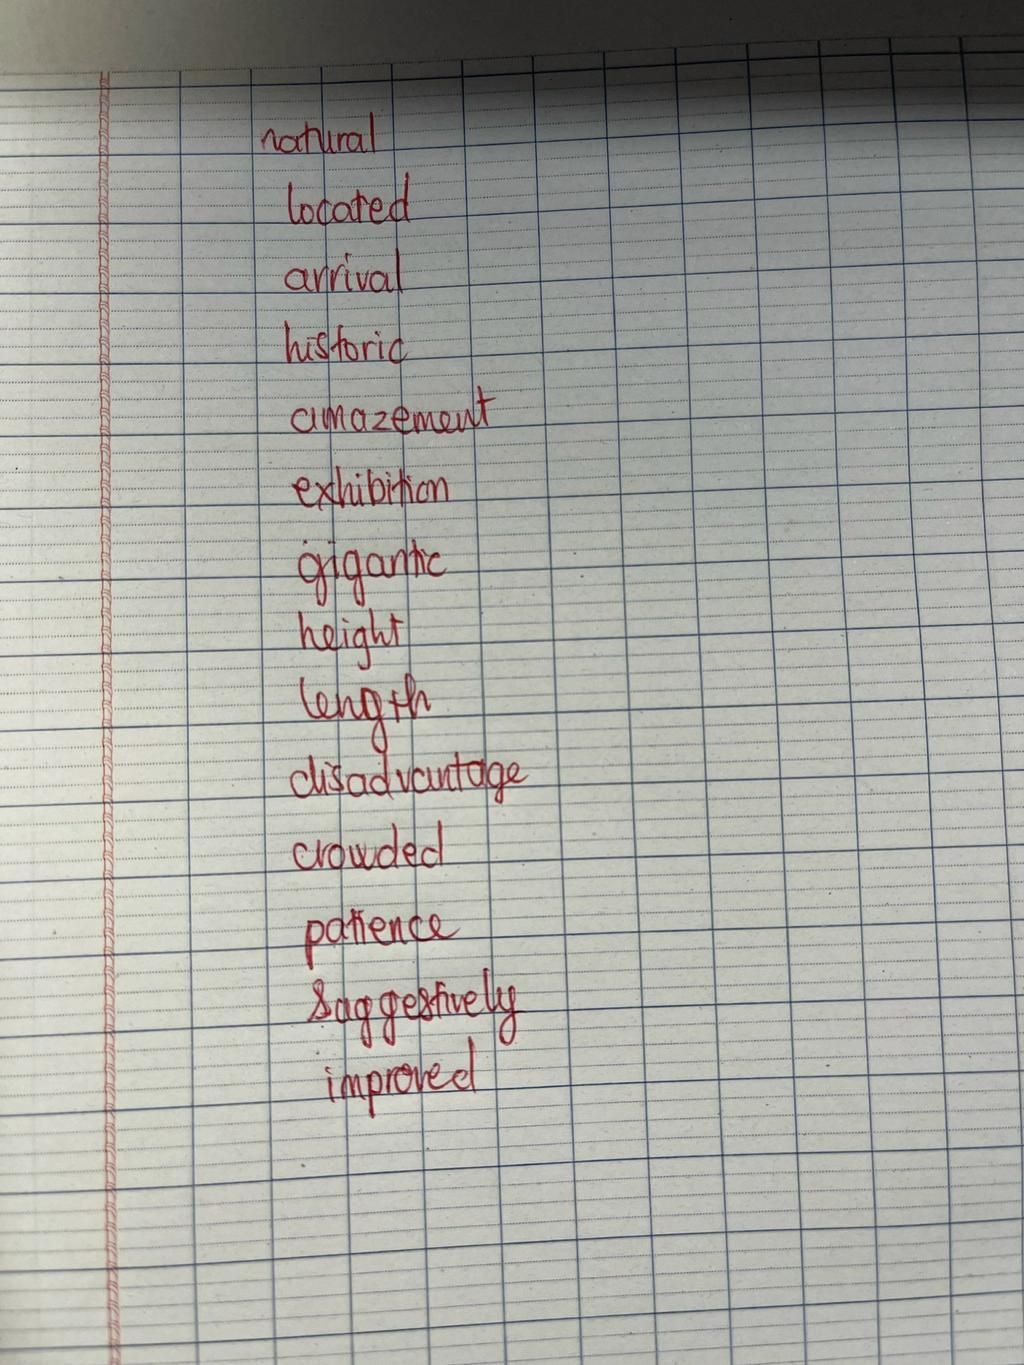 natural
located
arrival
historic
amazement
exhibition
gigantic
height
length
disadvantage
crowded
patience
suggestively
improved